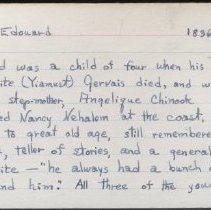 Edouard 1836
d was a child of four when his
ite (Yiamust) Gervais died, and w
step-mother, Angelique Chinook
ed Nancy Nehalem at the coast,
to great old age, still remembered
, teller of stories, and a general
ite — "he always had a bunch o
und him." All three of the you